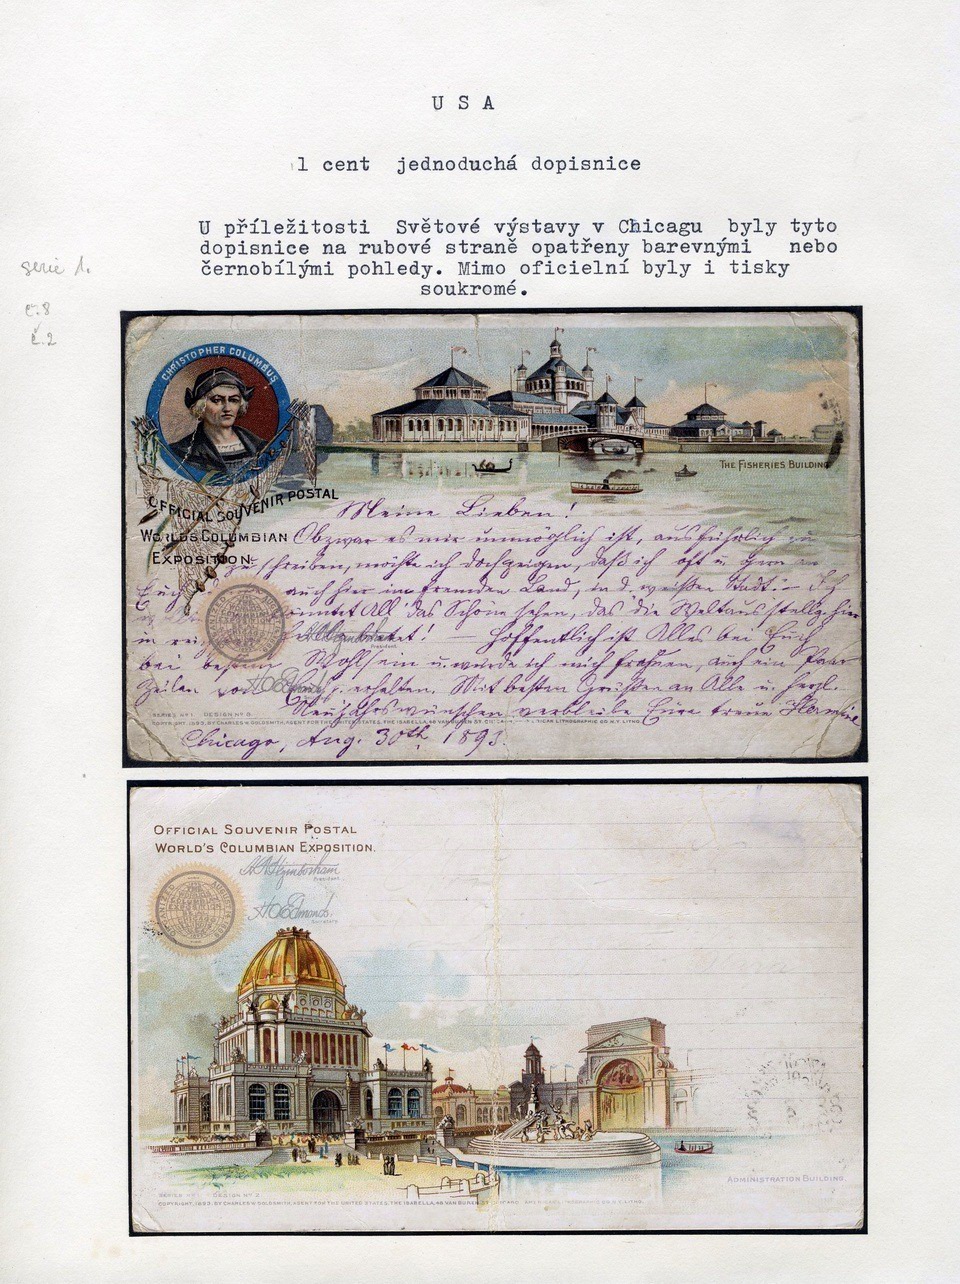 U S A
1 cent jednoduchá dopisnice
U příležitosti Světové výstavy v Chicagu byly tyto
dopisnice na rubové straně opatřeny barevnými nebo
černobílými pohledy. Mimo oficielní byly i tisky
soukromé.
serie 1.
č.8
č.2
CHRISTOPHER COLUMBUS
THE FISHERIES BUILDING
OFFICIAL SOUVENIR POSTAL
WORLDS COLUMBIAN
EXPOSITION
Meine Lieben!
Obzwar es mir unmöglich ist, ausführlich zu
schreiben, möchte ich doch zeigen, daß ich oft u. gern an
Euch auch hier im fremden Land, in d. weißen Stadt:- Ich
All das Schöne sehen, das die Weltausstellg. hier
in - Hoffentlich ist Alles bei Euch
bei bestem Wohlsein u. würde ich mich freuen, auch ein Paar
Zeilen von erhalten. Mit besten Grüßen an Alle u. herzl.
Neujahrswünschen verbleibe Eure treue
President.
SERIES Nº 1 DESIGN Nº 8
COPYRIGHT, 1893, BY CHARLES W. GOLDSMITH, AGENT FOR THE UNITED STATES, THE ISABELLA, 46 VAN BUREN ST. LITHOGRAPHIC CO. N.Y. LITHO.
Chicago, Aug. 30th 1893.
OFFICIAL SOUVENIR POSTAL
WORLD'S COLUMBIAN EXPOSITION.
President
H.O. Edmonds
Secretary
ADMINISTRATION BUILDING.
SERIES Nº 1 DESIGN Nº 2
COPYRIGHT, 1893, BY CHARLES W. GOLDSMITH, AGENT FOR THE UNITED STATES, THE ISABELLA, 46 VAN BUREN ST. CHICAGO AMERICAN LITHOGRAPHIC CO. N.Y. LITHO.